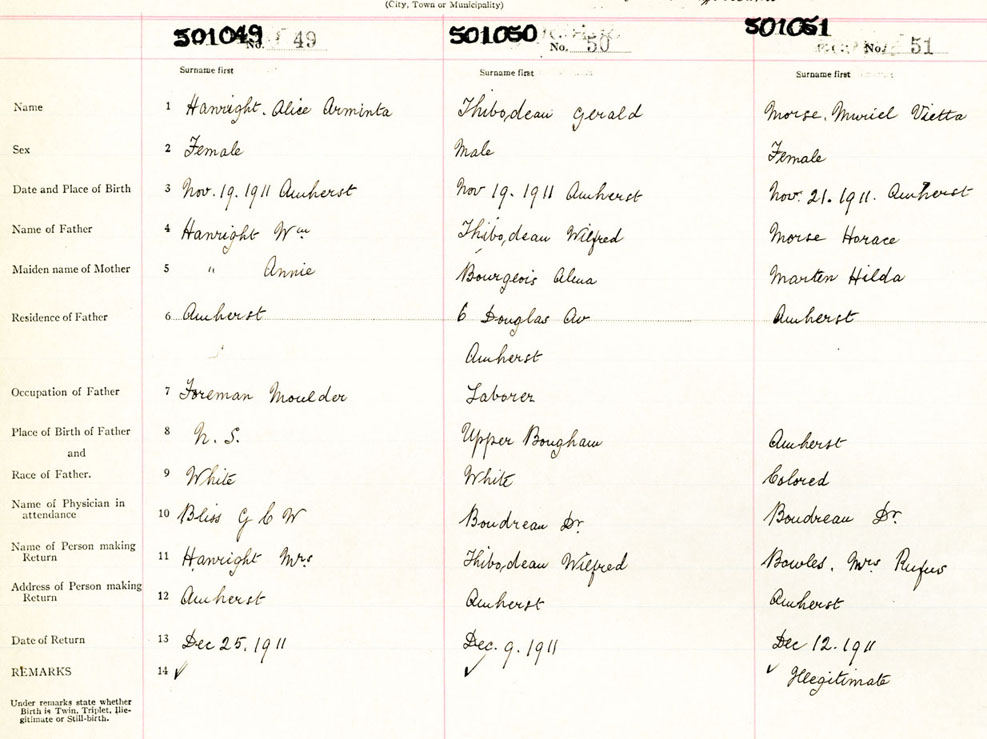 (City, Town or Municipality)
501049 No. 49 501050 No. 50 501051 No. 51
Surname first Surname first Surname first
Name 1 Hanright, Alice Arminta Thibodeau Gerald Morse, Muriel Vietta
Sex 2 Female Male Female
Date and Place of Birth 3 Nov. 19. 1911 Amherst Nov 19. 1911 Amherst Nov. 21. 1911. Amherst
Name of Father 4 Hanright Wm Thibodeau Wilfred Morse Horace
Maiden name of Mother 5 " Annie Bourgeois Alma Marten Hilda
Residence of Father 6 Amherst 6 Douglas Av Amherst
Amherst
Occupation of Father 7 Foreman Moulder Laborer
Place of Birth of Father 8 N. S. Upper Amherst
and
Race of Father. 9 White White Colored
Name of Physician in
attendance 10 Bliss G C W Boudreau Dr. Boudreau Dr.
Name of Person making
Return 11 Hanright Mrs Thibodeau Wilfred Bowles, Mrs Rufus
Address of Person making
Return 12 Amherst Amherst Amherst
Date of Return 13 Dec 25, 1911 Dec. 9. 1911 Dec 12. 1911
REMARKS 14 ✓ ✓ ✓ Illegitimate
Under remarks state whether
Birth is Twin, Triplet, Ille-
gitimate or Still-birth.